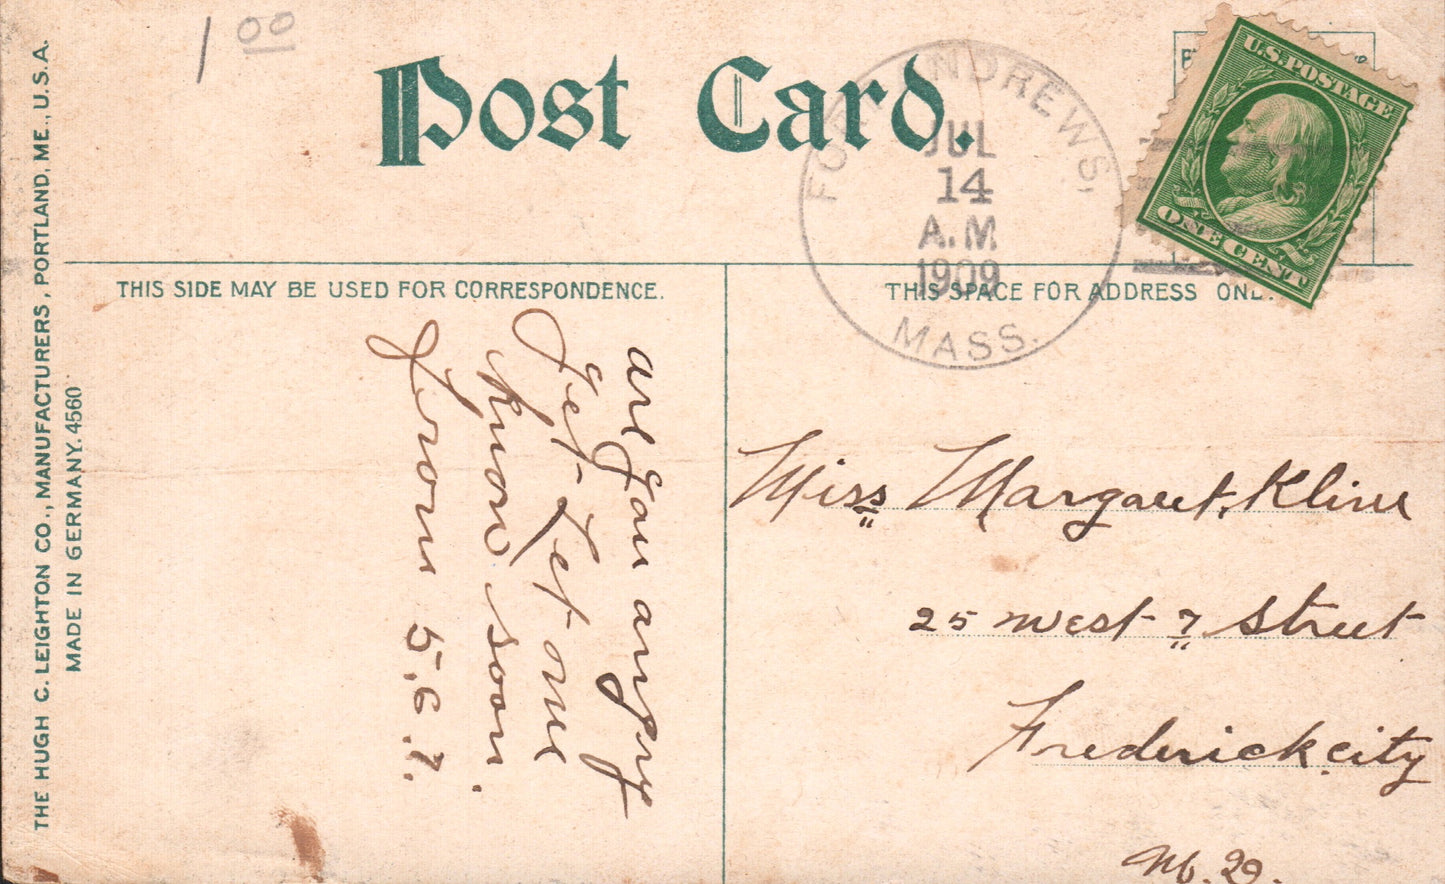 1 00
Post Card.
FORT ANDREWS,
JUL
14
A.M.
1909
MASS.
U.S. POSTAGE
ONE CENT
THIS SIDE MAY BE USED FOR CORRESPONDENCE.
THIS SPACE FOR ADDRESS ONL
are you angry
yet. Let me
know soon.
From
Miss Margaret. Kline
25 west 7 Street
Frederick. city
THE HUGH C. LEIGHTON CO., MANUFACTURERS, PORTLAND, ME., U.S.A.
MADE IN GERMANY. 4560